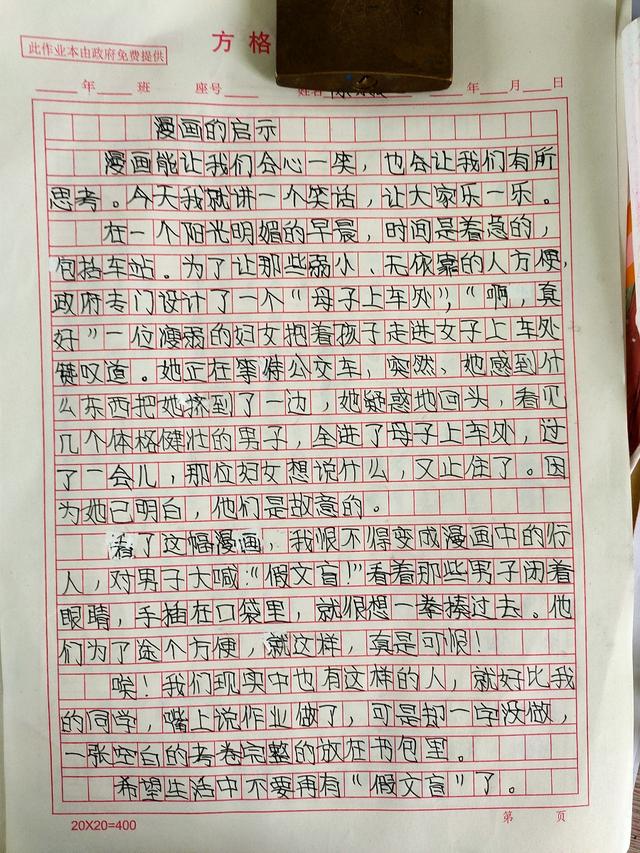 此作业本由政府免费提供
方格
年 班 座号 姓名 年 月 日
漫画的启示
漫画能让我们会心一笑，也会让我们有所
思考。今天我就讲一个笑话，让大家乐一乐。
在一个阳光明媚的早晨，时间是着急的，
包括车站。为了让那些弱小、无依靠的人方便，
政府专门设计了一个“母子上车处”，“啊，真
好”一位瘦弱的妇女抱着孩子走进女子上车处
叹道。她正在等待公交车，突然、她感到什
么东西把她挤到了一边，她疑惑地回头，看见
几个体格健壮的男子，全进了母子上车处，过
了一会儿，那位妇女想说什么，又止住了。因
为她已明白，他们是故意的。
看了这幅漫画，我恨不得变成漫画中的行
人，对男子大喊：“假文盲！”看着那些男子闭着
眼睛，手插在口袋里，就很想一拳揍过去。他
们为了途个方便，就这样，真是可恨！
唉！我们现实中也有这样的人，就好比我
的同学，嘴上说作业做了，可是却一字没做，
一张空白的考卷完整的放在书包里。
希望生活中不要再有“假文盲”了。
20X20=400
第 页